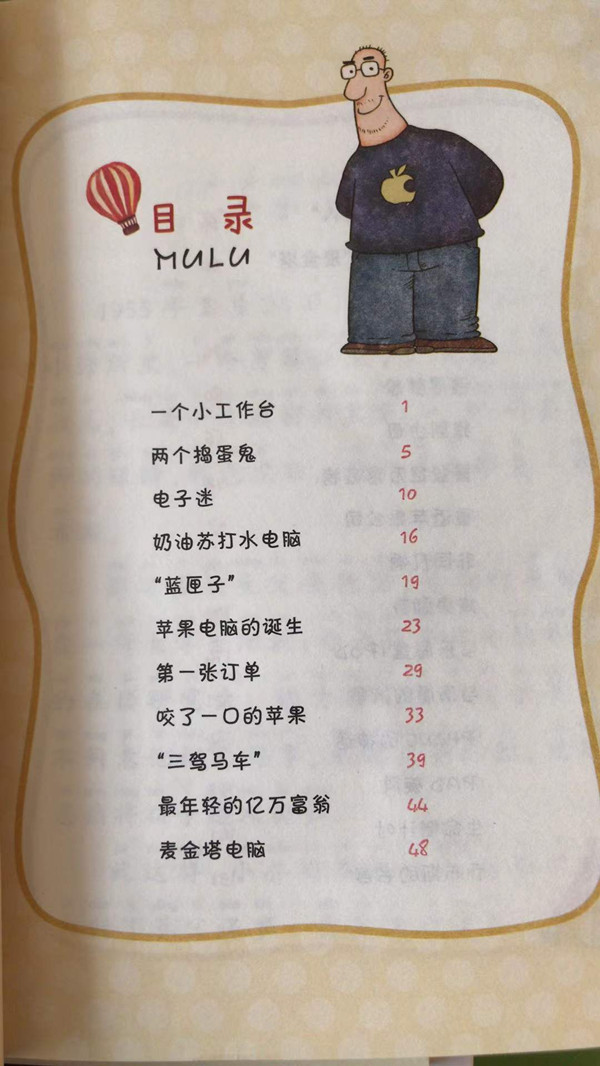 目 录
MULU
一个小工作台 1
两个捣蛋鬼 5
电子迷 10
奶油苏打水电脑 16
“蓝匣子” 19
苹果电脑的诞生 23
第一张订单 29
咬了一口的苹果 33
“三驾马车” 39
最年轻的亿万富翁 44
麦金塔电脑 48